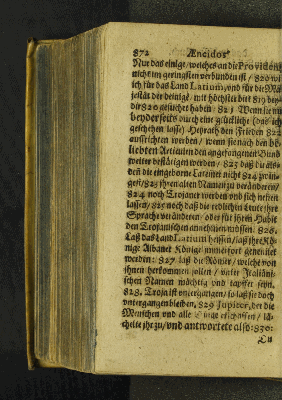 872 Æneidos
Nur das einige / welches an die Providenz
nicht im geringsten verbunden ist / 820 wil
ich für das Land Latium, und für die Ma-
jestät der deinigē mit höchster bitt 819 bey
dir 820 gesuchet haben / 821 Wenn sie nu
beyderseits durch eine glückliche (das ich
geschehen lasse) Heyrath den Frieden 822
auffrichten werden / wenn sie nach den be-
liebten Articulen den angefangenen Bund
weiter bestätigen werden / 823 daß du als-
den die eingeborne Lateiner nicht 824
ihren alten Namen zu verändern /
824 noch Trojaner werden und sich nennen
lassen / 825 noch daß die redlichen Leute ihre
Sprache verändern / oder für ihrem Habit
den Trojanischen annehmen müssen. 826.
Laß das Land Latium heissen / laß ihre Kö-
nige Albaner Könige immerfort genennet
werden: 827. laß die Römer / welche von
ihnen herkommen sollen / unter Italiäni-
schen Namen mächtig und tapffer seyn.
828. Troja ist untergangen / so laß sie doch
untergangen bleiben. 829 Jupiter, der die
Menschen und alle Dinge erschaffen / lä-
chelte ihr zu / und antwortete also: 830:
Du